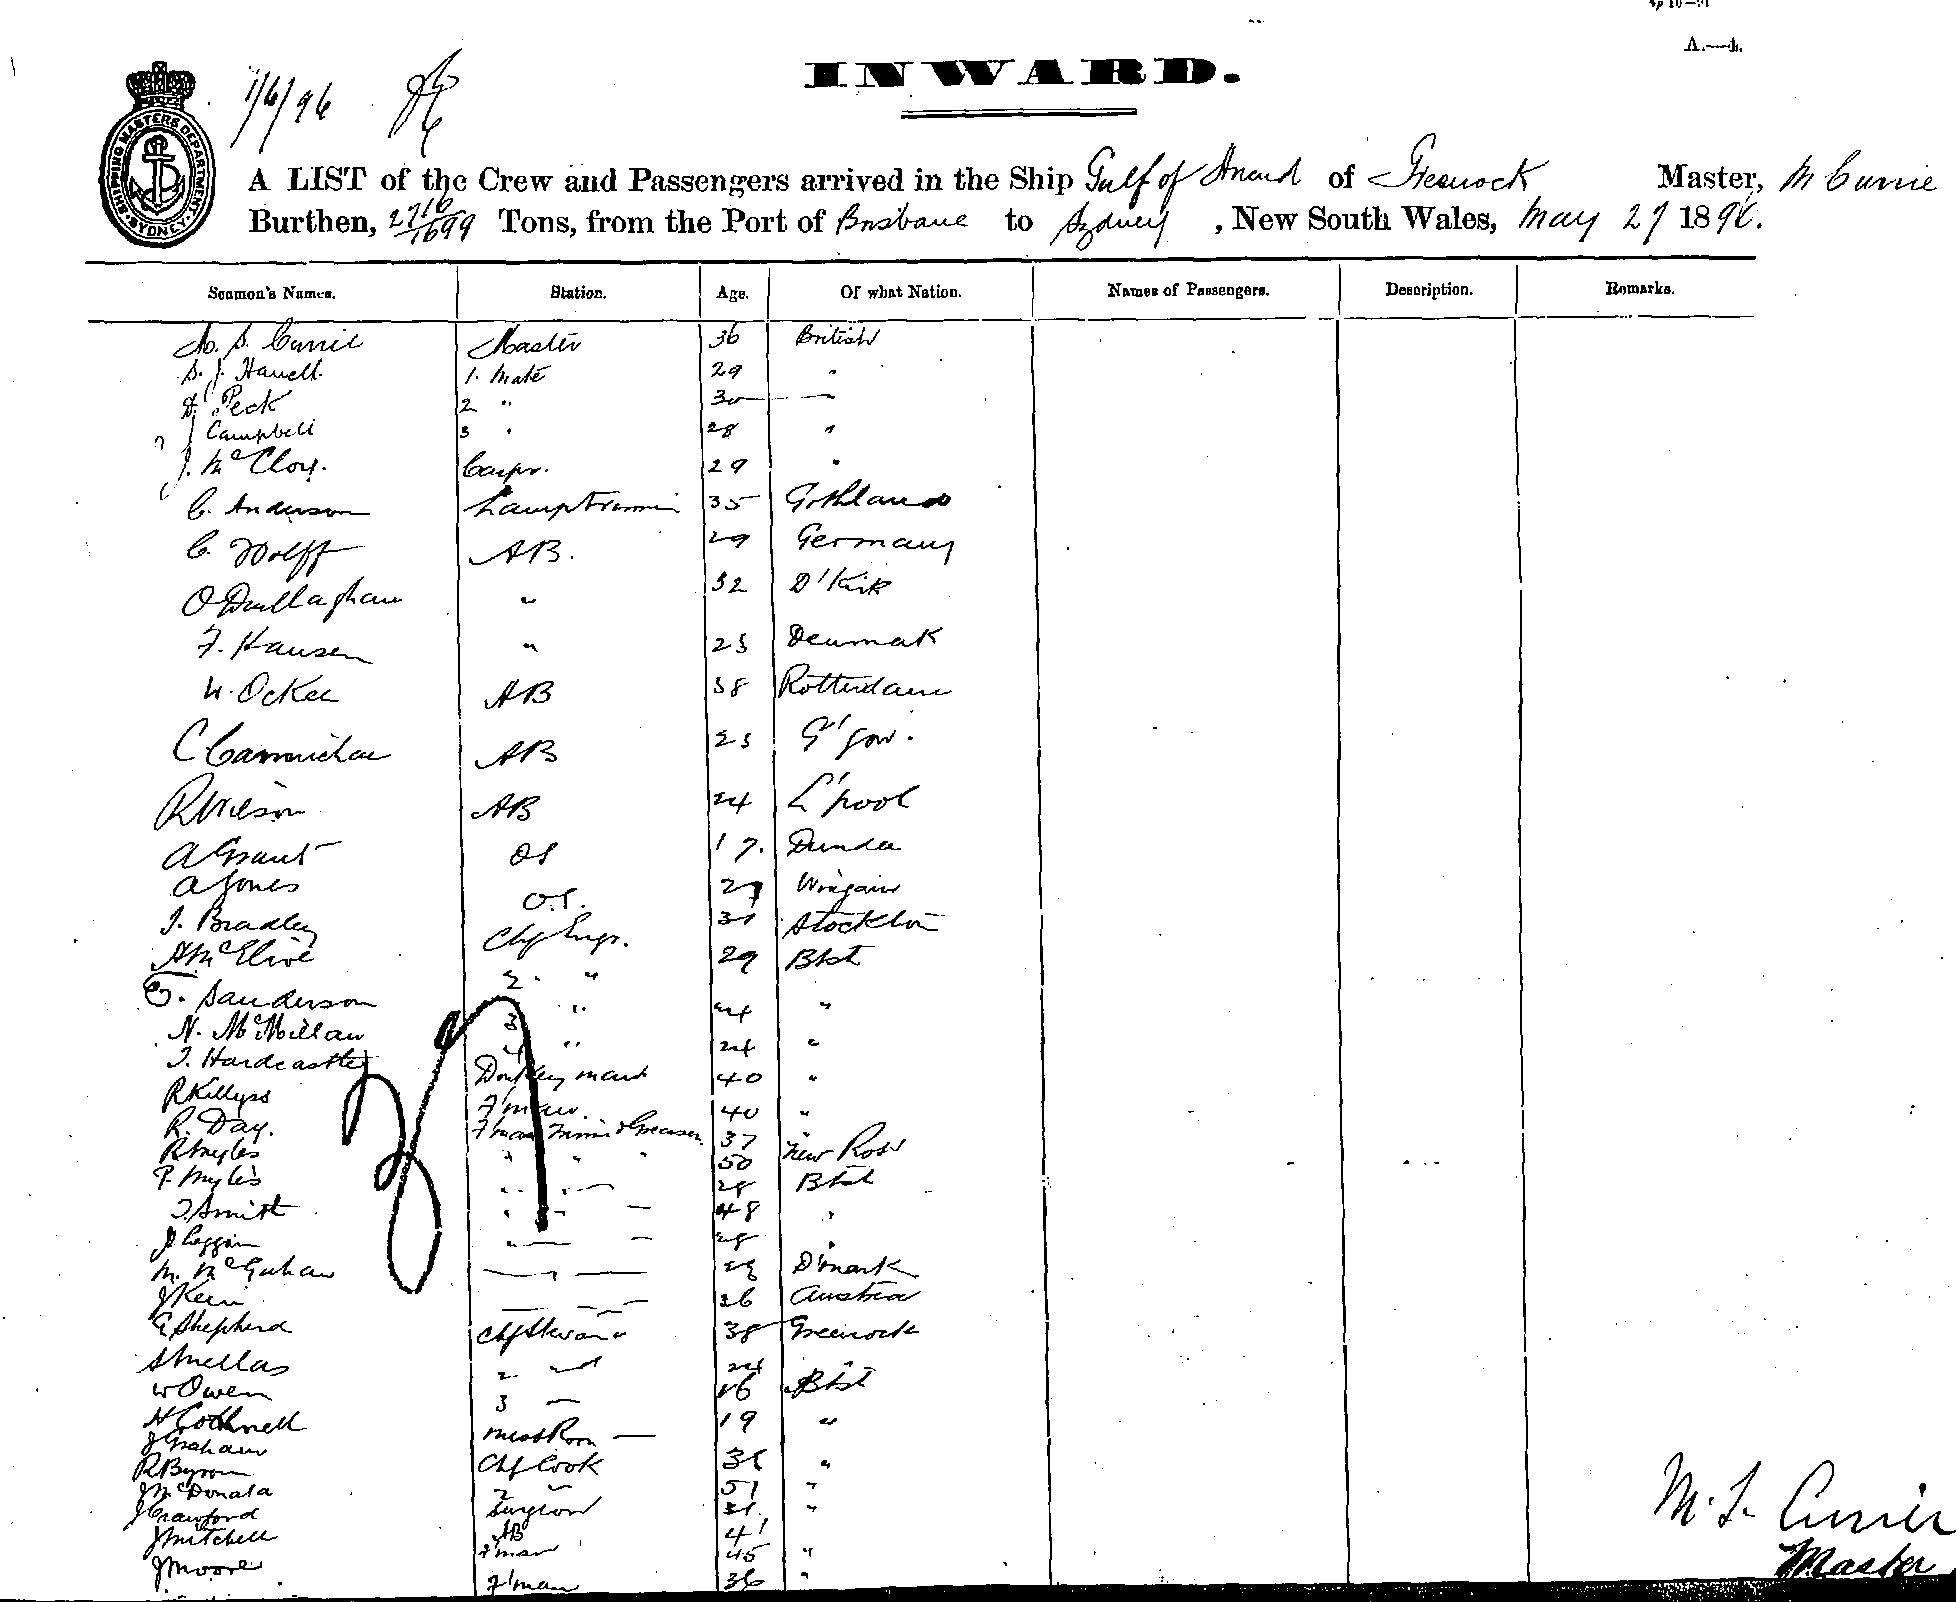 A.—4.
1/6/96
INWARD.
SHIPPING MASTERS DEPARTMENT SYDNEY
A LIST of the Crew and Passengers arrived in the Ship Gulf of of Greenock Master, M Currie
Burthen, 2716/1699 Tons, from the Port of Brisbane to Sydney, New South Wales, May 29 1896.
Seamen's Names. Station. Age. Of what Nation. Names of Passengers. Description. Remarks.
M. S. Currie Master 36 British
S. J. 1. Mate 29 "
Peck 2 " 30 —
J Campbell 3 " 28 "
J. McCloy. Carpr. 29 "
C. Anderson 35 Gothland
C. Wolff AB. 29 Germany
" 32 D'Kirk
F. Hansen " 23 Denmak
AB 38 Rotterdam
C Carmichae AB 23 G'gow.
R Wilson AB 24 L'pool
A Grant OS 17. Dundee
A Jones O.S. 27
J. Bradley Chf Engr. 31 Stockton
2 " 29 Bfst
Sanderson 3 " 24 "
N. McMillan 4 " 24 "
J. Hardcastle Donkeyman 40 "
F'man. 40 "
R. Day. F'man Trimr & Greaser 37
R Myles " " " 50 New Ross
P. Myles " " — 28 Bfst
J. Smith " " — 48 "
" — — 28 "
M. — " — D'mark
J Kein — — — 26 Austria
Shepherd Chf Steward 38 Greenock
2 " 24
W Owen 3 — 16 Bfst
H Messroom — 19 "
J Graham Chf Cook "
R Byrom 2 " 51 "
J McDonald Surgeon "
J Crawford AB 41
J Mitchell F'man 45 "
J Moore F'man 36 "
M. S. Currie
Master